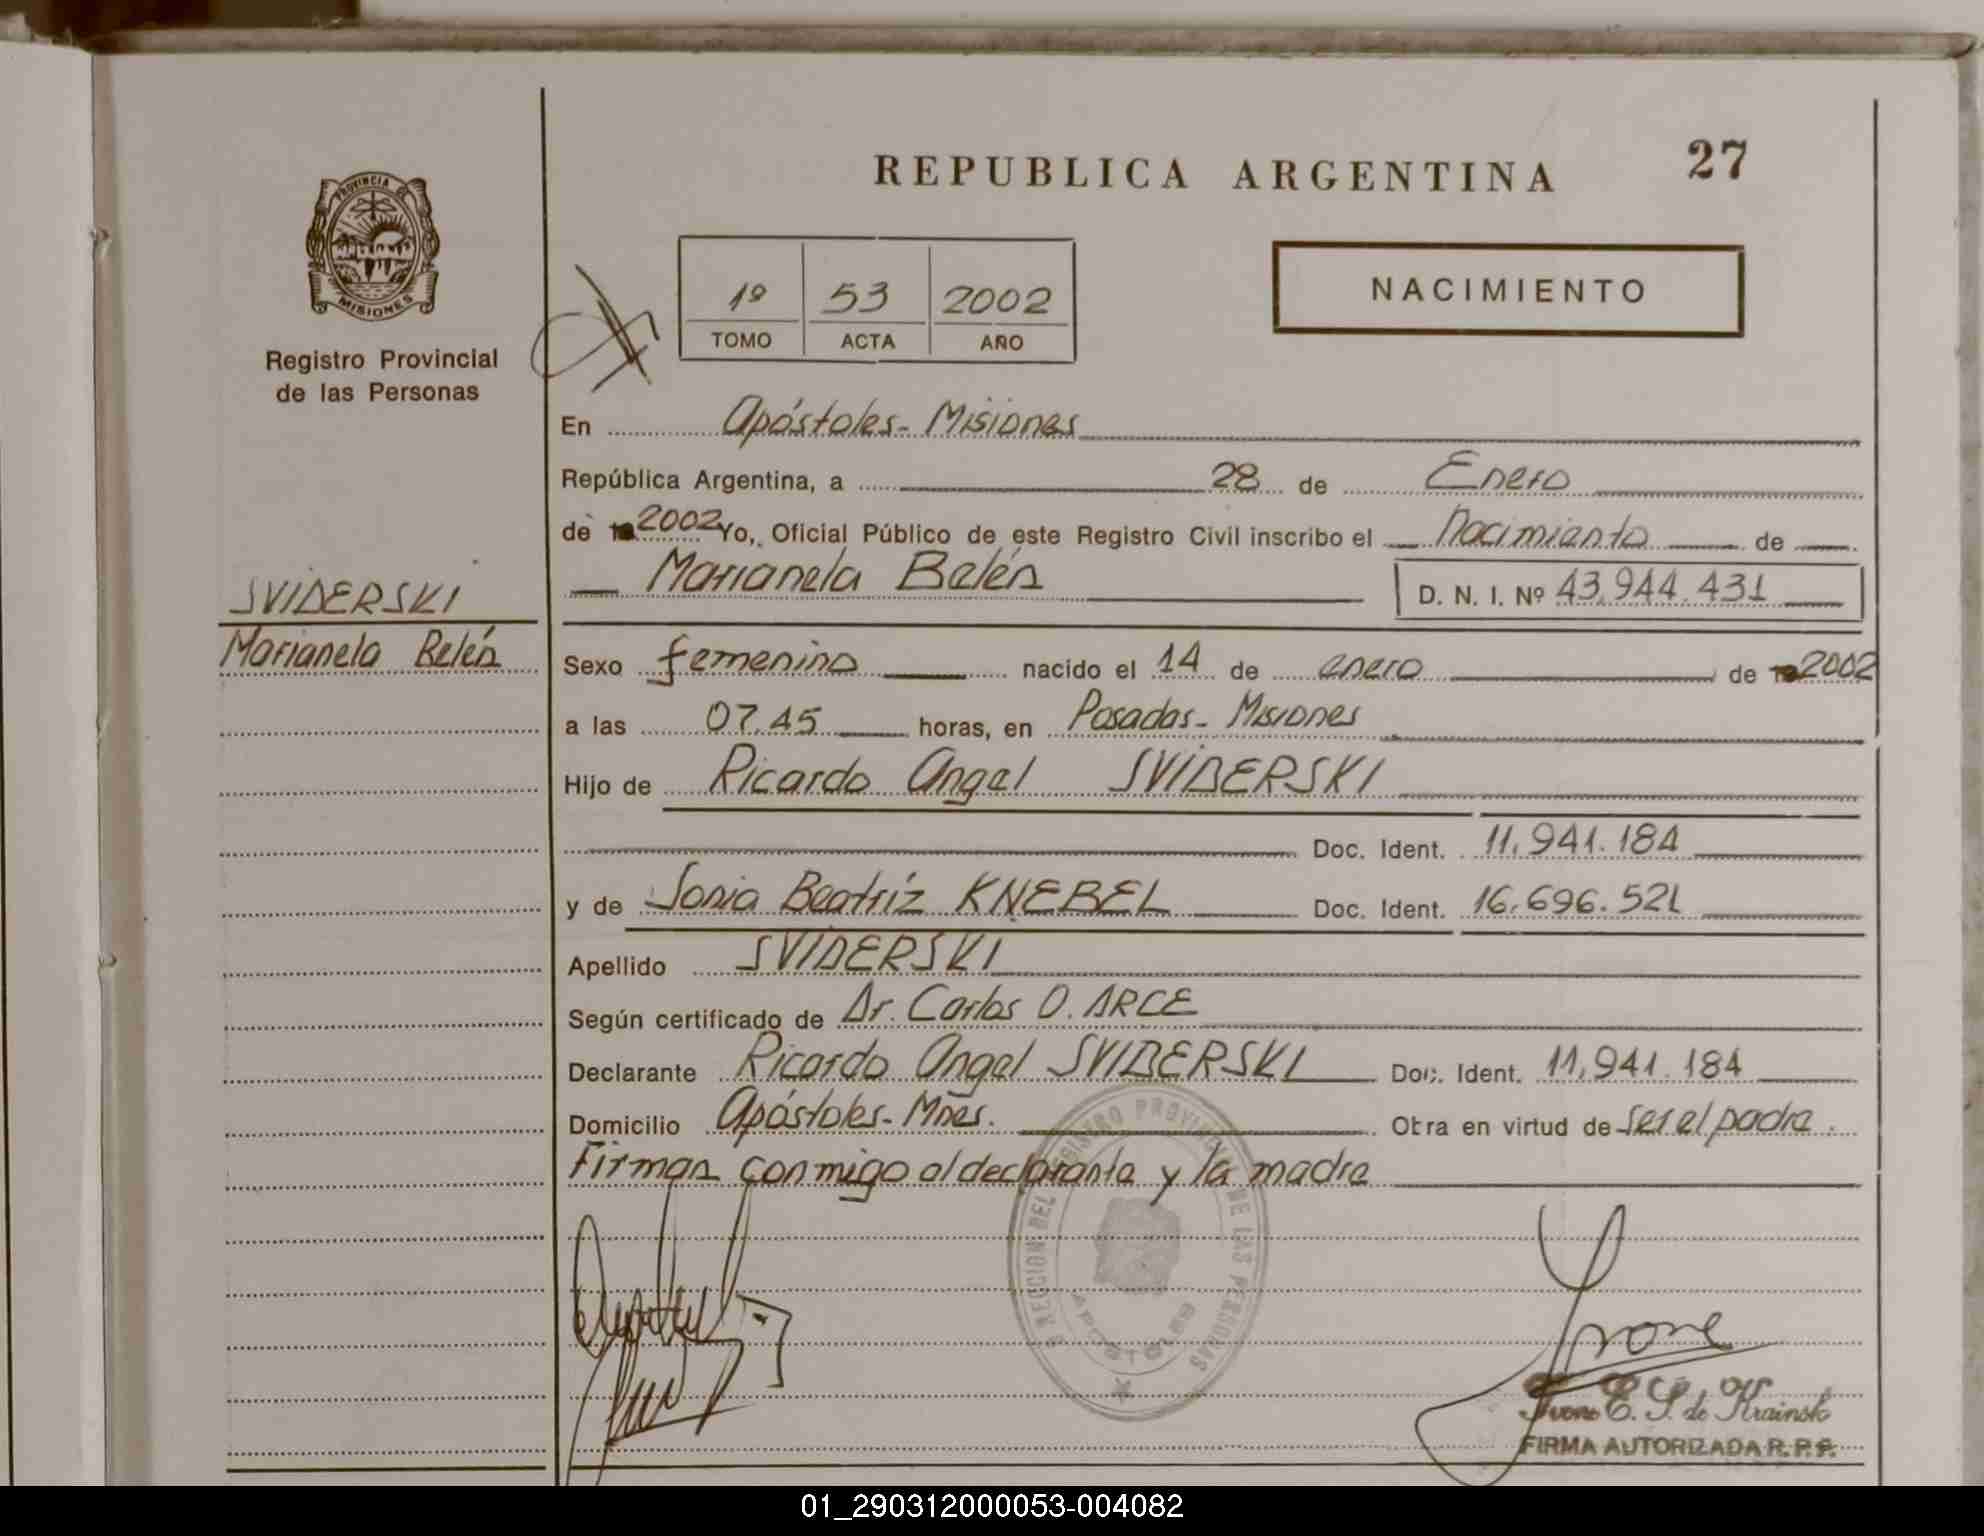 REPUBLICA ARGENTINA 27
PROVINCIA DE
MISIONES
Registro Provincial
de las Personas
1º 53 2002
TOMO ACTA AÑO
NACIMIENTO
En Apóstoles - Misiones
República Argentina, a 28 de Enero
de 2002 Yo, Oficial Público de este Registro Civil inscribo el Nacimiento de
Marianela Belén D. N. I. Nº 43.944.431
SVIDERSKI
Marianela Belén
Sexo femenino nacido el 14 de enero de 2002
a las 07.45 horas, en Posadas - Misiones
Hijo de Ricardo Angel SVIDERSKI
Doc. Ident. 11.941.184
y de Sonia Beatríz KNEBEL Doc. Ident. 16.696.521
Apellido SVIDERSKI
Según certificado de Dr. Carlos O. ARCE
Declarante Ricardo Angel SVIDERSKI Doc. Ident. 11.941.184
Domicilio Apóstoles - Mnes. Obra en virtud de ser el padre.
Firman conmigo el declarante y la madre
DIRECCION DEL REGISTRO PROVINCIAL DE LAS PERSONAS
APOSTOLES
Ivone
Ivone E. S. de Krainski
FIRMA AUTORIZADA R. P. P.
01_290312000053-004082